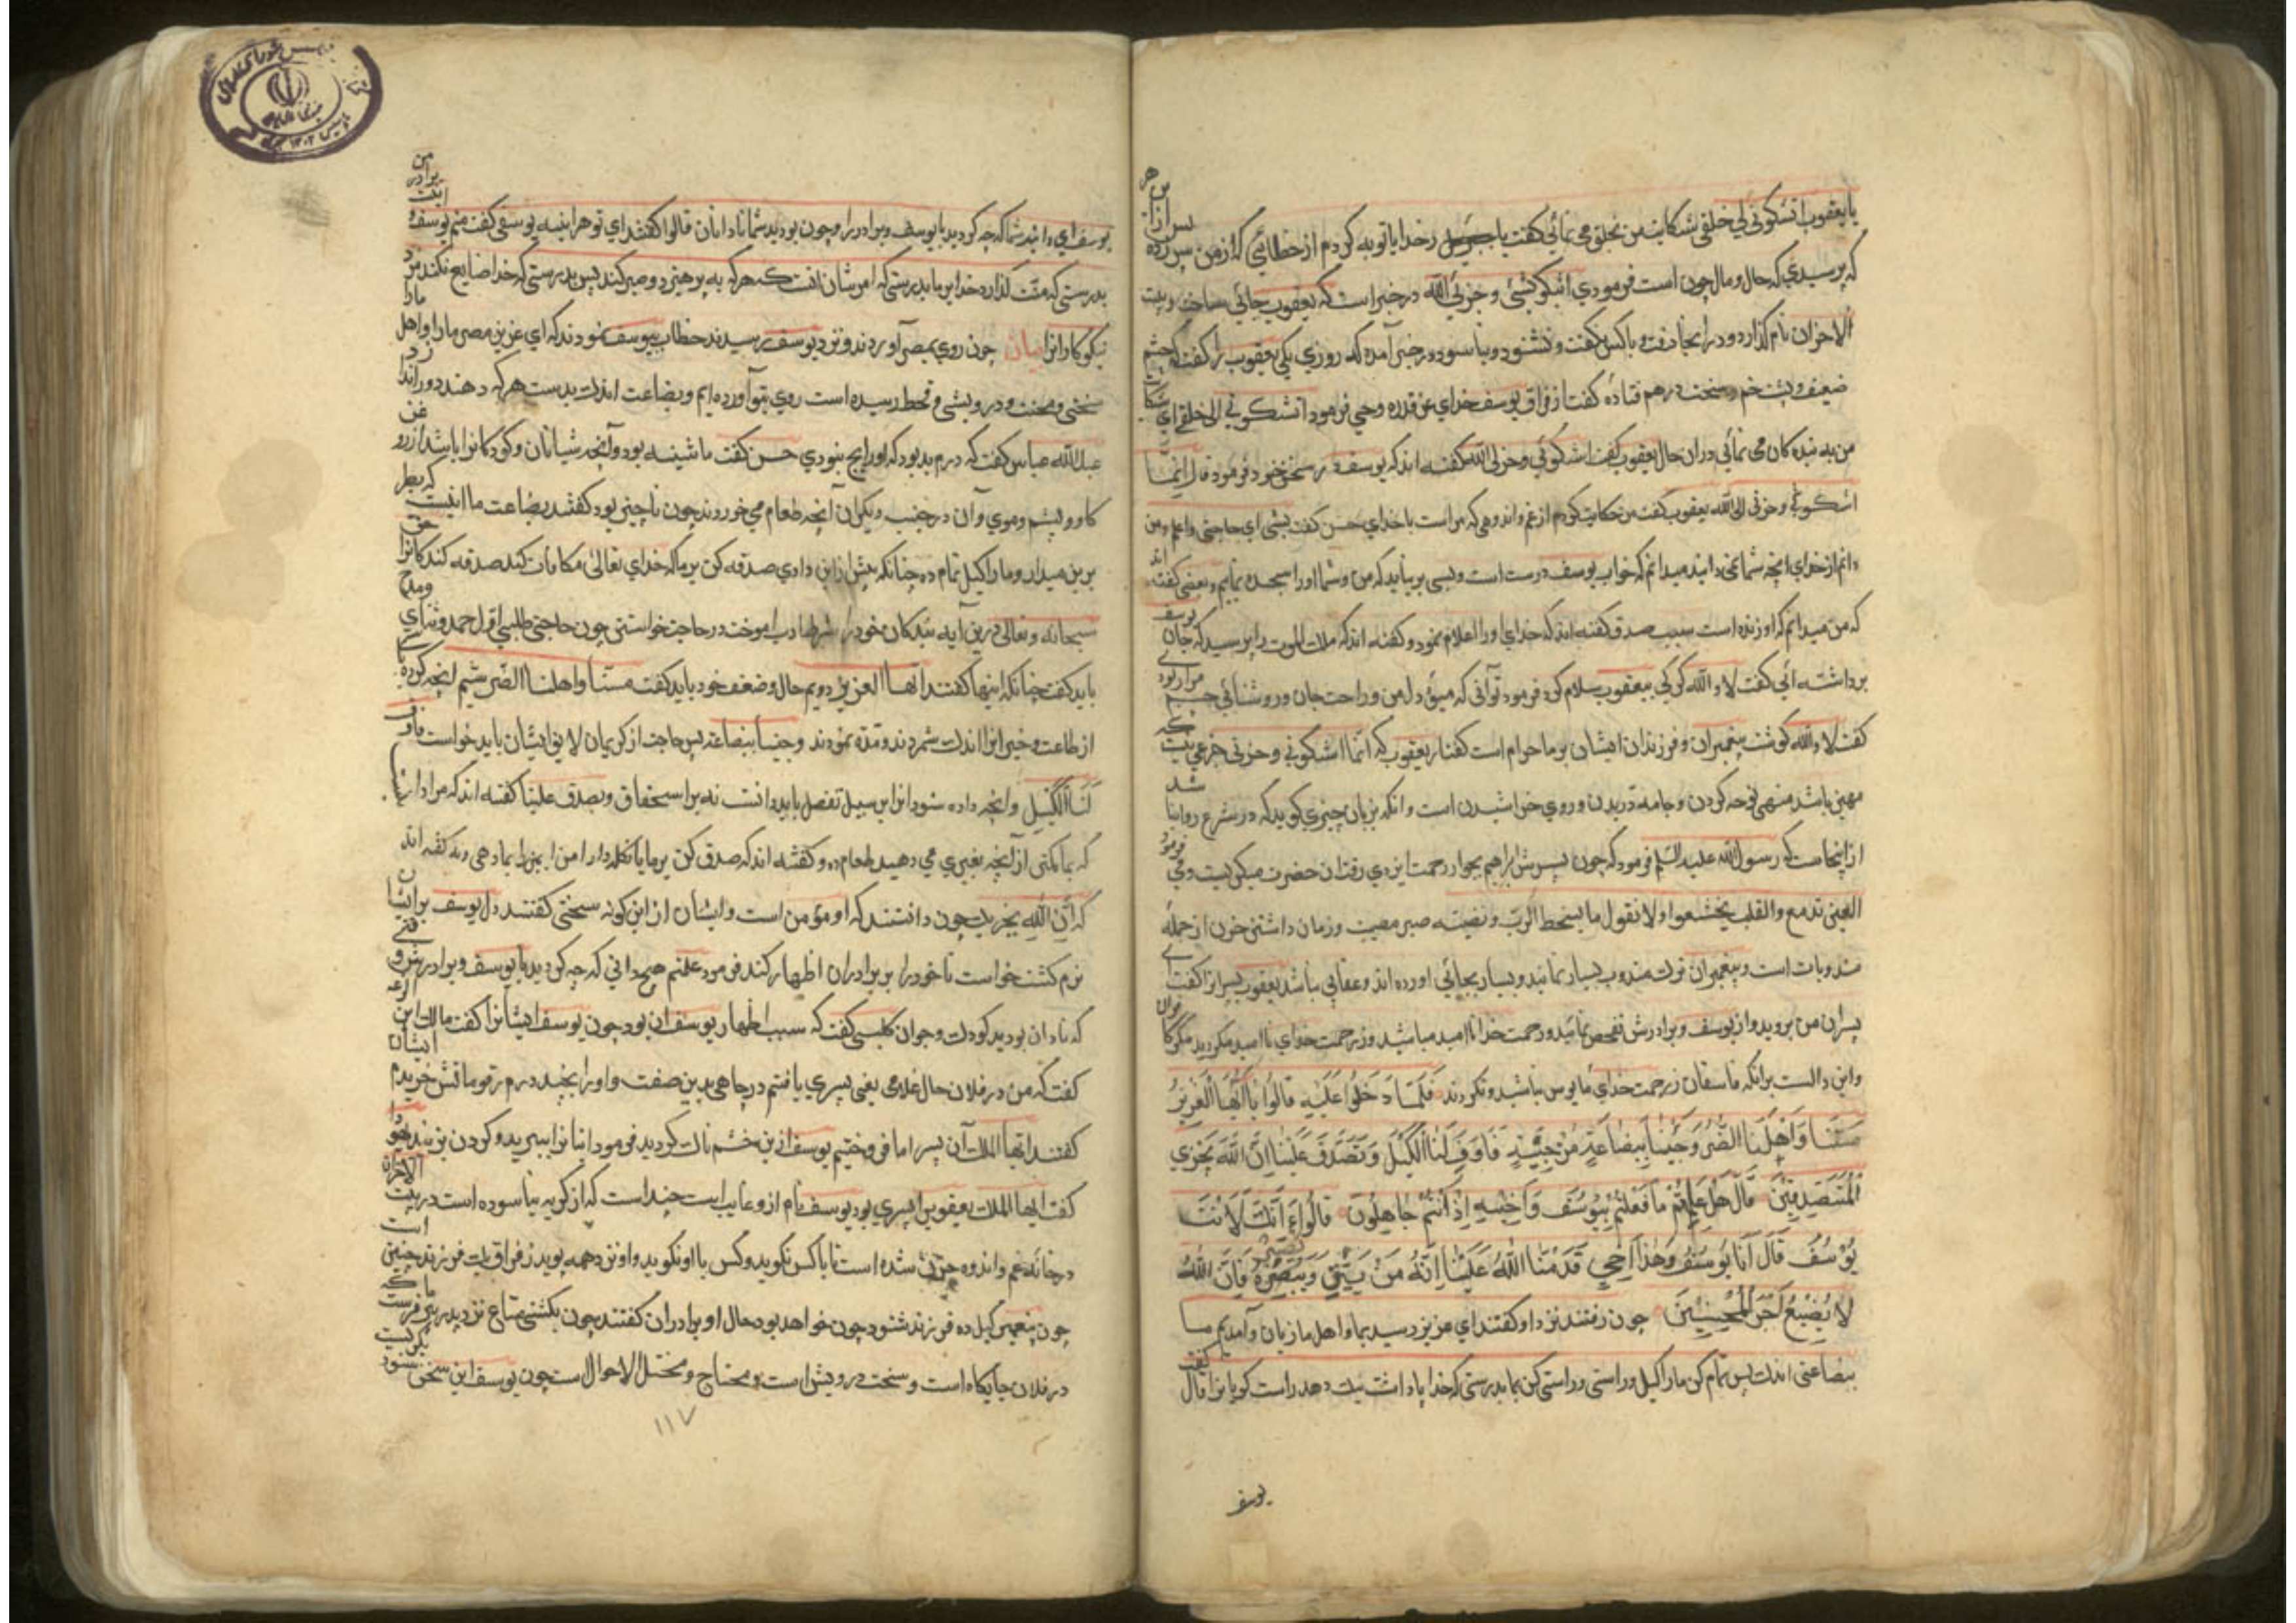 یا یعقوب اتشکونی لی خلقی شکایت من بخلق می نمائی کفت یا رخدایا توبه کردم از خطائی که از من
که پرسیدی که حال و مال چون است فرمودی اشکو بثی و حزنی الله در خبر است که یعقوب جائی ساخت و بیت
الاحزان نام کذارد و در انجا رفت و با کس نکفت و نشنود و نیاسود در خبر آمده که روزی یکی یعقوب را کفت که چشم
ضعیف و پشت خم و سخت درهم فتاده کفت از فراق یوسف خدای عز قدره وحی فرمود اتشکونی الی خلقی ای
من به بنده کان می نمائی در ان حال یعقوب کفت اشکو بثی و حزنی الی الله کفته اند که یوسف در سخن خود فرمود قال انما
اشکو بثی و حزنی الی الله یعقوب کفت من حکایت کردم از غم و اندوهی که مراست با خدای حسن کفت بثی ای حاجتی و اعلم و من
دانم از خدای انچه شما نمی دانید میدانم که خواب یوسف درست است و بسی بر نیاید که من و شما او را سجده نمایم و بعضی کفته اند
که من میدانم که او زنده است سبب صدق کفته اند که خدای او را اعلام نمود و کفته اند که ملک الموت را پرسید که جان یوسف
برداشته ائی کفت لا و الله کرکی بیعقوب سلام کرد فرمود تو آنی که میوۀ دل من و راحت جان و روشنائی چشم
کفت لا و الله کوشت پیغمبران و فرزندان ایشان بر ما حرام است کفتار یعقوب که انما اشکو بثی و حزنی جزعی نیست که
منهی باشد منهی نوحه کردن و جامه دریدن و روی خراشیدن است و انکه بزبان چیزی کوید که در شرع روا نباشد
از اینجاست که رسول الله علیه السلم فرمود که چون پسرش ابراهیم بجوار رحمت ایزدی رفت ان حضرت میکریست و می فرمود
العین تدمع و القلب یخشع و لا نقول ما یسخط الرب و صبر مصیبت و زمان داشتن حزن از جمله
مندوبات است و پیغمبران ترک مندوب بسیار نمایند و بسیار بجائی اورده اند و عقابی نباشد یعقوب پسرانرا کفت ای
پسران من بروید و از یوسف و برادرش تفحص نمائید و رحمت خدا ناامید مباشید و از رحمت خدای ناامید نکردید مکر کافران
و این دالست برانکه فاسقان ز رحمت خدای مأیوس نباشد و نکردند فَلَمَّا دَخَلُوا عَلَیْهِ قَالُوا یَا أَیُّهَا الْعَزِیزُ
مَسَّنَا وَ اَهْلَنَا الضُّرُّ وَ جِئْنَا بِبِضَاعَةٍ مُزْجٰیةٍ فَاَوْفِ لَنَا الْکَیْلَ وَ تَصَدَّقْ عَلَیْنَا اِنَّ اللهَ یَجْزِی
الْمُتَصَدِّقِینَ قَالَ هَلْ عَلِمْتُمْ مَا فَعَلْتُمْ بِیُوسُفَ وَ اَخِیهِ اِذْ اَنْتُمْ جَاهِلُونَ قَالُوا ءَ اِنَّکَ لَاَنْتَ
یُوْسُفُ قَالَ اَنَا یُوسُفُ وَ هٰذَا اَخِی قَدْ مَنَّ اللهُ عَلَیْنَا اِنَّهُ مَنْ یَتَّقِ وَ یَصْبِرْ فَاِنَّ اللهَ
لَا یُضِیْعُ اَجْرَ الْمُحْسِنِینَ چون رفتند نزد او کفتند ای عزیز رسید بما و اهل ما زیان و آمدیم ما
بضاعتی اندک پس تمام کن ما را کیل و راستی و راستی کن بما بدرستی که خدا پاداشت نیک دهد راست کویانرا قال کفت
یوسف
یوسف ای دانید شما که چه کردید با یوسف و برادر را و چون بودید شما نادانان قالوا کفتند ای تو هراینه یوسفی کفت منم یوسف و این برادر من
بدرستی که منت کذارد خدا بر ما بدرستی که امر شان انست که هر که به پرهیزد و صبر کند پس بدرستی که خدا ضایع نکند مزد
نیکوکارانرا بیان چون روی بمصر آوردند و نزد یوسف رسیدند خطاب بیوسف نمودند که ای عزیز مصر ما را و اهل ما را
سختی و محنت و درویشی و قحط رسیده است روی بتو آورده ایم و بضاعت اندک بدست هر که دهند دور اندازد
عبدالله عباس کفت که درم بد بود که او رایج نبودی حسن کفت ماشینه بود و آنچه شبانان و کودکانرا باشد از روغن
کاو و پشم و موی و آن در جنب دیکران آنچه طعام می خوردند چون ناچیز بود کفتند بضاعت ما اینست که بطر
بر بن میدار و ما را کیل تمام ده چنانکه پیش از این دادی صدقه کن بر ما که خدای تعالی مکافات کند صدقه کنندکانرا حق
سبحانه و تعالی درین آیه بندکان خود را شرط ادب اموخت در حاجت خواستن چون حاجتی طلبی اول حمد و ثنای و مدح
باید کفت چنانکه اینها کفتند ایها العزیز دویم حال و ضعف خود باید کفت مسنا و اهلنا الضر سیم انچه کرده
از طاعت و خیر انرا اندک شمردند و نموند و جئنا ببضاعة پس حاجت از کریمان لایق ایشان باید خواست فاوف
لَنَا الْکَیْلَ و انچه داده شود انرا بر سبیل تفضل باید دانست نه بر استحقاق و تصدق علینا کفته اند که مراد انست
که بما کنی از آنچه بغیری می دهید طعام ده و کفته اند که صدق کن بر ما یا نکه دار امن ابن یامین را بما دهی و نه کفته اند
که اِنَّ اللهَ یجزیک چون دانستند که او مؤمن است و ایشان از این کونه سخنی کفتند دل یوسف بر ایشان
نرم کشت خواست تا خود را بر برادران اظهار کند فرمود علمتم هیچ دانی که چه کردید با یوسف و برادرش وقتی
که نادان بودید کودک و جوان کلبی کفت که سبب اظهار یوسف ان بود چون یوسف ایشانرا کفت مالک ابن
کفت که من در فلان حال غلامی یعنی پسری یافتم در چاهی بدین صفت و او را بچند درم خریدم ایشان
کفتند ایها الملک آن پسر را ما فروختیم یوسف ازین خشم ناک کردید فرمود اینانرا ببرید و کردن بزنید
کفت ایها الملک یعقوب را پسری بود یوسف نام از و غایب است چند است که از کریه نیاسوده است در بیت الاحزان
در خانه غم و اندوه شده است با کس نکوید و کس با او نکوید و او نزدهمه پوید ز فراق یک فرزند چنین است
چون پیغمبر کیل ده فرزند شنود چون خواهد بود حال او برادران کفتند چون بکشتی متاع نزد پدر ما فرست که
در فلان جایکاه است و سخت درویش است و محتاج و مختل الاحوال است چون یوسف این سخن شنود بکریست
۱۱۷